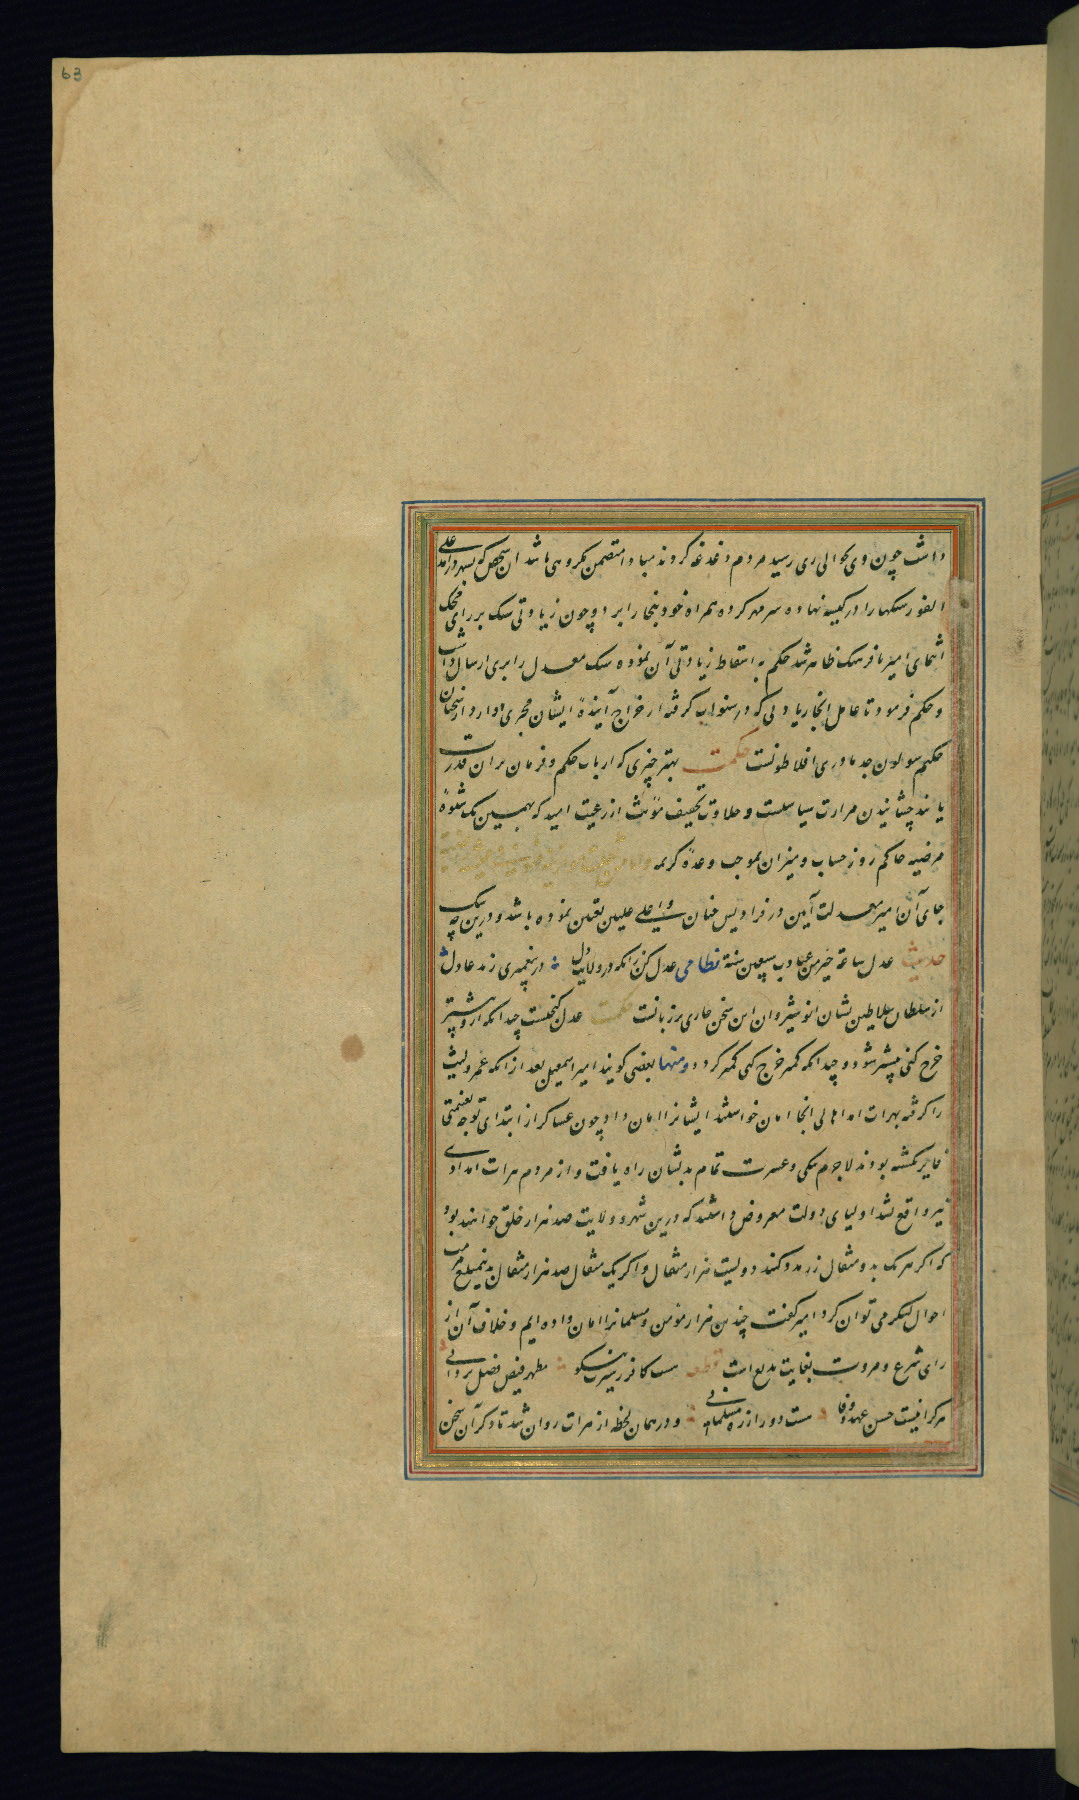 63
داشت چون وی بحوالی ری رسید مردم دغدغه کردند مبادا متضمن مکروهی باشد آن شخص که بشهر درآمد علی
الفور سنگها را در کیسه نهاده سر مهر کرده همراه خود ببخارا برد و چون زیادتی سنگ بر رای
امیر با فرهنگ ظاهر شد حکم به اسقاط زیادتی آن نموده سنگ معدل را بری ارسال داشت
و حکم فرمود تا عامل آنجا زیادتی که در سنوات گرفته از خراج آینده ایشان مجری دارد از سخنان
حکیم سولون جد مادری افلاطونست حکمت بهتر چیزی که ارباب حکم و فرمان بران قدرت
یابند چشانیدن مرارت سیاست و حلاوت تخفیف مؤنت از رعیت امید که بهمین یک شیوهٔ
مرضیه حاکم روز حساب و میزان بموجب وعدهٔ کریمه
جای آن امیر معدلت آیین در فرادیس جنان و اعلی علیین تعیین نموده باشد و درین
حدیث عدل ساعة خیر من عبادة سبعین سنة نظامی عدل کن زانکه در ولایت دل در پیغمبری زند عادل
از سلطان سلاطین نشان انوشیروان این سخن جاری بر زبانست حکمت عدل گنجیست چندانکه ازو بیشتر
خرج کنی بیشتر شود و چندانکه کمتر خرج کنی کمتر گردد ومنها بعضی گویند امیر اسمعیل بعد از آنکه عمرو لیث
را گرفته بهرات آمد اهالی آنجا امان خواستند ایشانرا امان داد و چون عساکر از ابتدای توجه بغنیمتی
فایز نگشته بودند لاجرم تنگی و عسرت تمام بدیشان راه یافت و از مردم هرات امدادی
نیز واقع نشد اولیای دولت معروض داشتند که درین شهر و ولایت صد هزار خلق خواهند بود
که اگر هر یک بدو مثقال زر مدد کنند دویست هزار مثقال و اگر یک مثقال صد هزار مثقال بدینمبلغ مرمت
احوال لشکر می توان کرد امیر گفت چندین هزار مؤمن و مسلمانرا امان داده ایم و خلاف آن از
رای شرع و مروت بغایت بدیع است قطعه هست کافر ز سیرت نیکو مظهر فیض فضل یزدانی
هرکرا نیست حسن عهد و وفا هست دور از ره مسلمانی و در همان لحظه از هرات روان شد تا دگر آن سخن